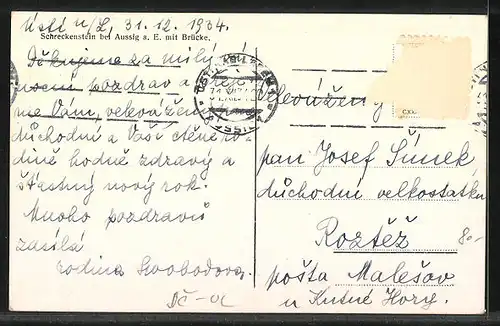 Ústí n/L, 31.12.1934.
Schreckenstein bei Aussig a. E. mit Brücke.
Děkujeme za milý
pozdrav a
me Vám, velevážený pane
důchodní a Vaší ctěné ro-
dině hodně zdravý a
šťastný nový rok.
Mnoho pozdravů
zasílá
rodina Svobodova.
Dč-UL
ÚSTÍ
AUSSIG
Velevážený
pan Josef Šimek
důchodní velkostatku
Roztěž
80.-
pošta Malešov
u Kutné Hory.